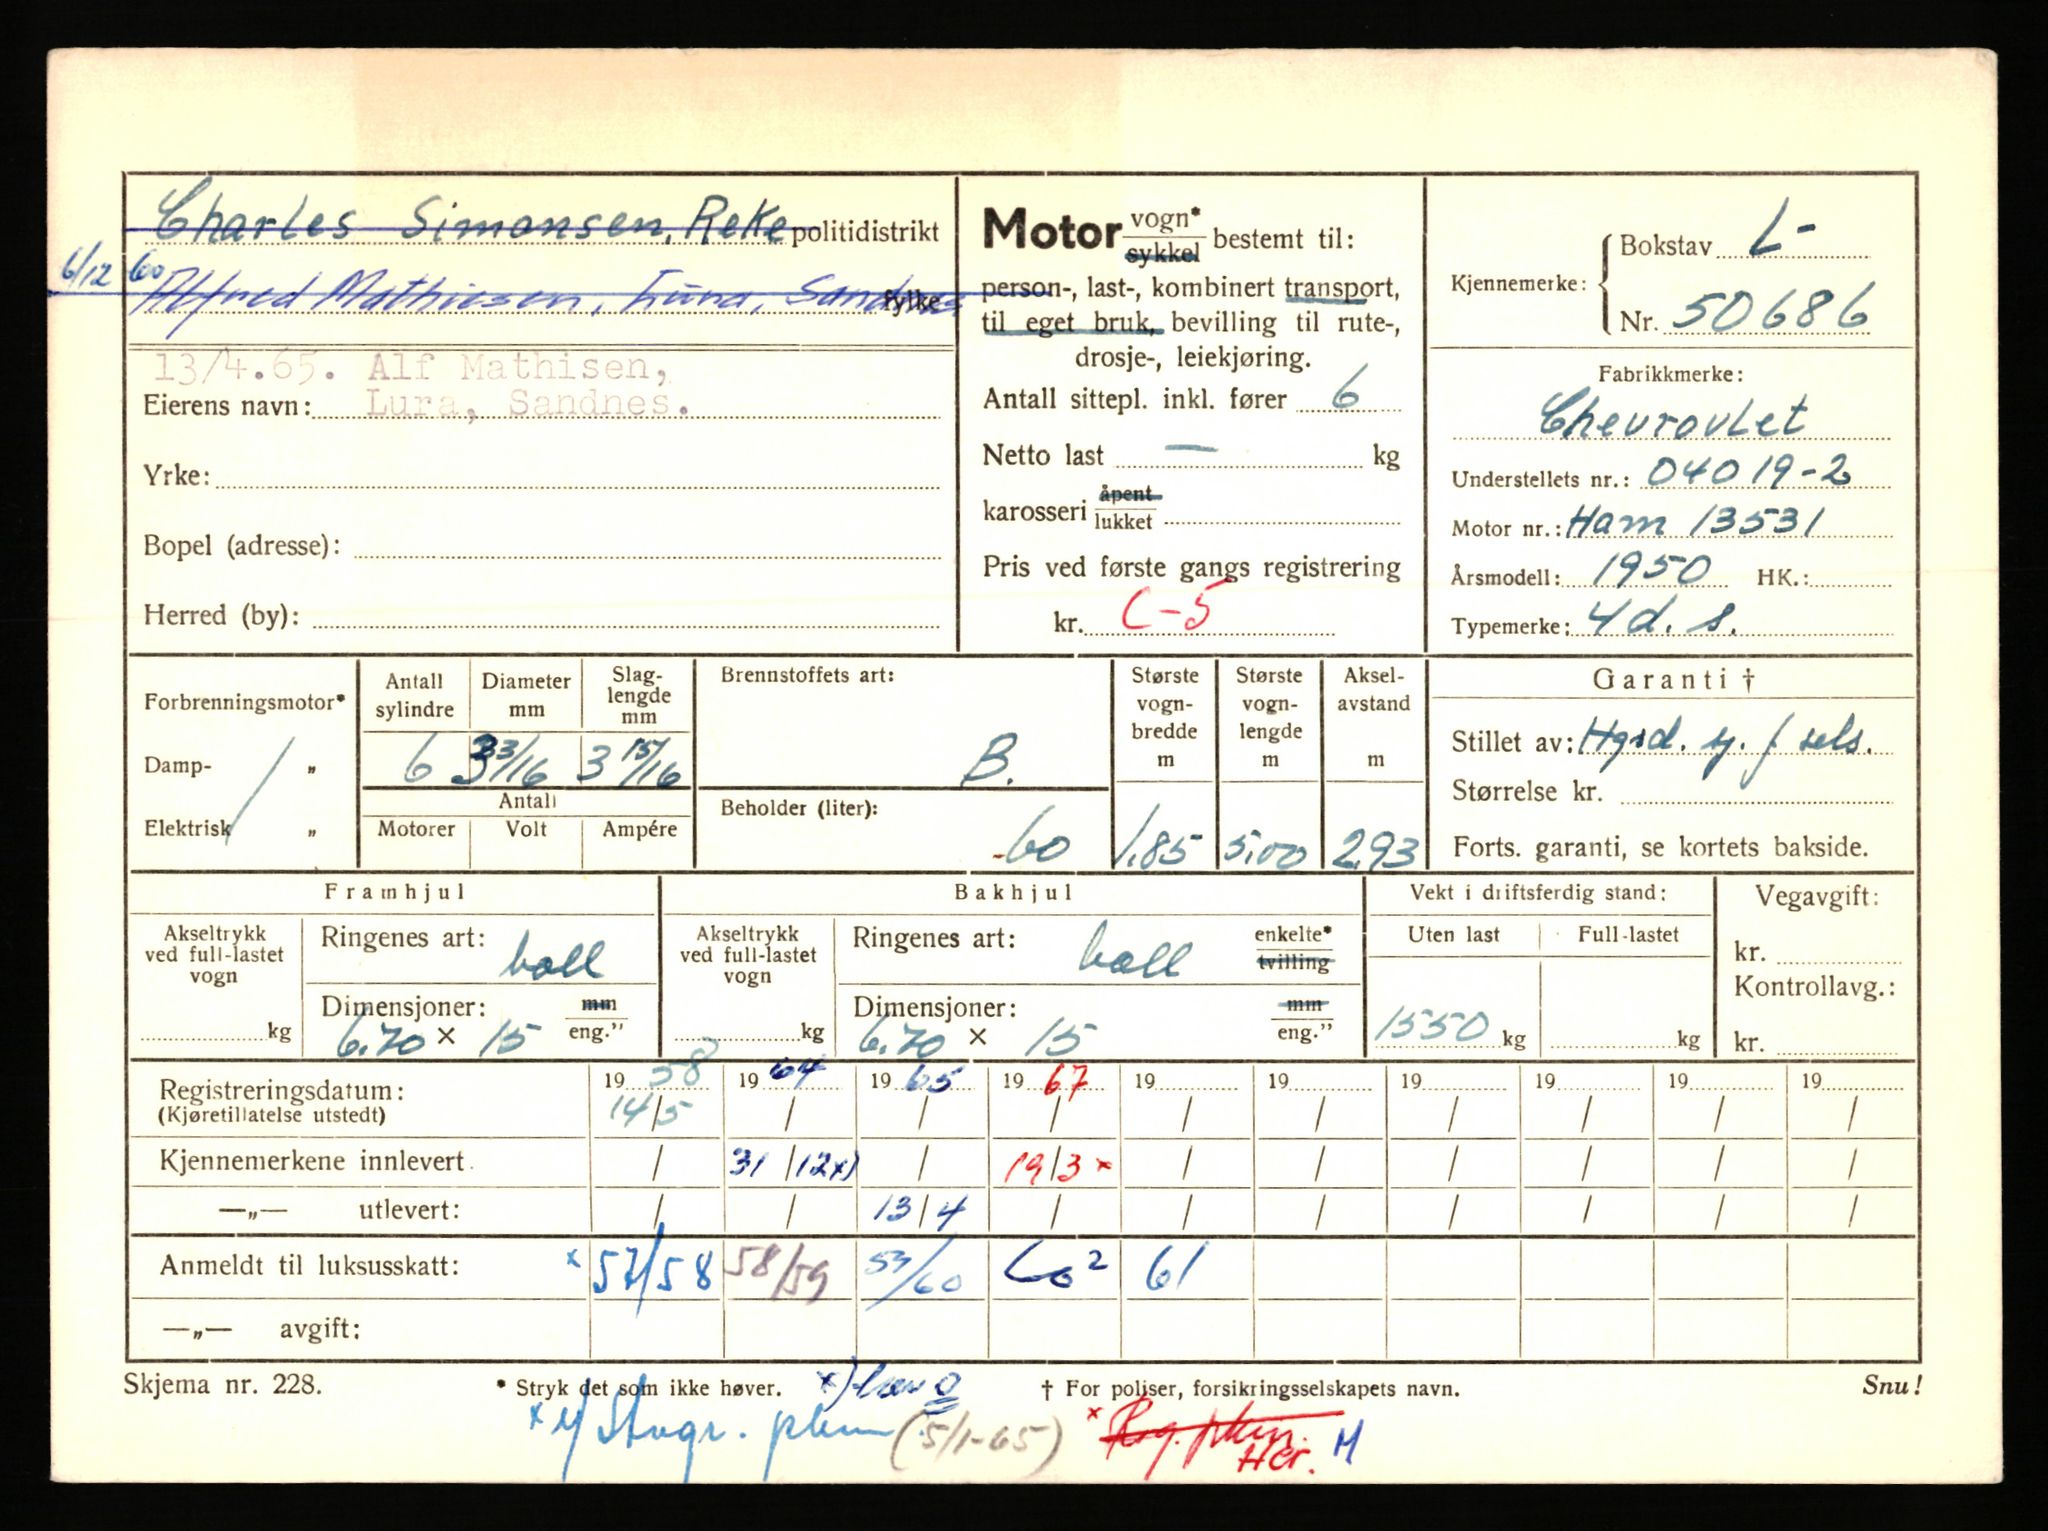 Charles Simonsen, Reke politidistrikt
6/12 60 Alfred Mathiesen, Lura, Sandnes fylke
13/4.65. Alf Mathisen,
Eierens navn: Lura, Sandnes.
Yrke:
Bopel (adresse):
Herred (by):
Motor vogn* sykkel bestemt til:
person-, last-, kombinert transport,
til eget bruk, bevilling til rute-,
drosje-, leiekjøring.
Antall sittepl. inkl. fører 6
Netto last — kg
karosseri åpent lukket
Pris ved første gangs registrering
kr. C-5
Kjennemerke: Bokstav L-
Nr. 50686
Fabrikkmerke:
Chevrovlet
Understellets nr.: 04019-2
Motor nr.: Ham 13531
Årsmodell: 1950 HK.:
Typemerke: 4d. s.
Forbrenningsmotor*
Damp- „
Elektrisk „
Antall sylindre Diameter mm Slaglengde mm
6 3 3/16 3 15/16
Antall
Motorer Volt Ampére
Brennstoffets art:
B.
Beholder (liter):
60
Største vognbredde m
1.85
Største vognlengde m
5.00
Akselavstand m
2.93
Garanti †
Stillet av: y. f sels.
Størrelse kr.
Forts. garanti, se kortets bakside.
Framhjul
Akseltrykk ved full-lastet vogn
kg
Ringenes art: ball
Dimensjoner: mm
6.70 × 15 eng.”
Bakhjul
Akseltrykk ved full-lastet vogn
kg
Ringenes art: ball enkelte* tvilling
Dimensjoner: mm
6.70 × 15 eng.”
Vekt i driftsferdig stand:
Uten last Full-lastet
1550 kg kg
Vegavgift:
kr.
Kontrollavg.:
kr.
Registreringsdatum: 19 58 19 64 19 65 19 67 19 19 19 19 19 19
(Kjøretillatelse utstedt) 14/5 / / / / / / / / /
Kjennemerkene innlevert / 31/12x) / 19/3 x / / / / / /
—„— utlevert: / / 13/4 / / / / / / /
Anmeldt til luksusskatt: x 57/58 58/59 59/60 60 2 61
—„— avgift:
Skjema nr. 228. * Stryk det som ikke høver. x) † For poliser, forsikringsselskapets navn. Snu!
x (5/1-65) x Her. M